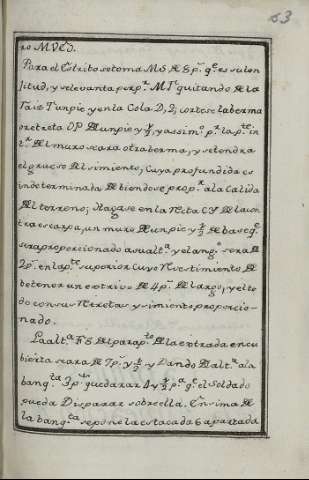 63
ro M, V, &c.
Para el Estrivo se toma M S de 8 p.s q.e es su lon
jitud, y se levanta perp.r M T quitando de la
raiz 1 un pie y en la Cola D, 2; cortese la berma
o retreta O P de un pie y ½, y assim.o p.r la p.te in
t.r del muro se ara otra berma, y se tendra
el grueso del simiento, Cuya profundida es
indeterminada debiendose prop.r a la Calida
del terreno; Hagase en la Recta C Y de la con
tra escarpa, un muro de un pie y ½ de bas q.e
sera proporcionado a su alt.a y el ang.o sera de
2 p.s en la p.te superior Cuyo Revestimiento de
be tener un extrivo de 4 p.s de largo, y el to
do con sus Retretas y simiento proporcio-
nado.
La alt.a F G del parap.to de la estrada encu
bierta se ara de 7 p.s y ½ y Dando de alt.a a la
banq.ta 3 p.s quedaran 4 y ½ p.a q.e el Soldado
pueda Disparar sobre ella. Ensima de
la banq.ta se pone la estacada 6 apartada